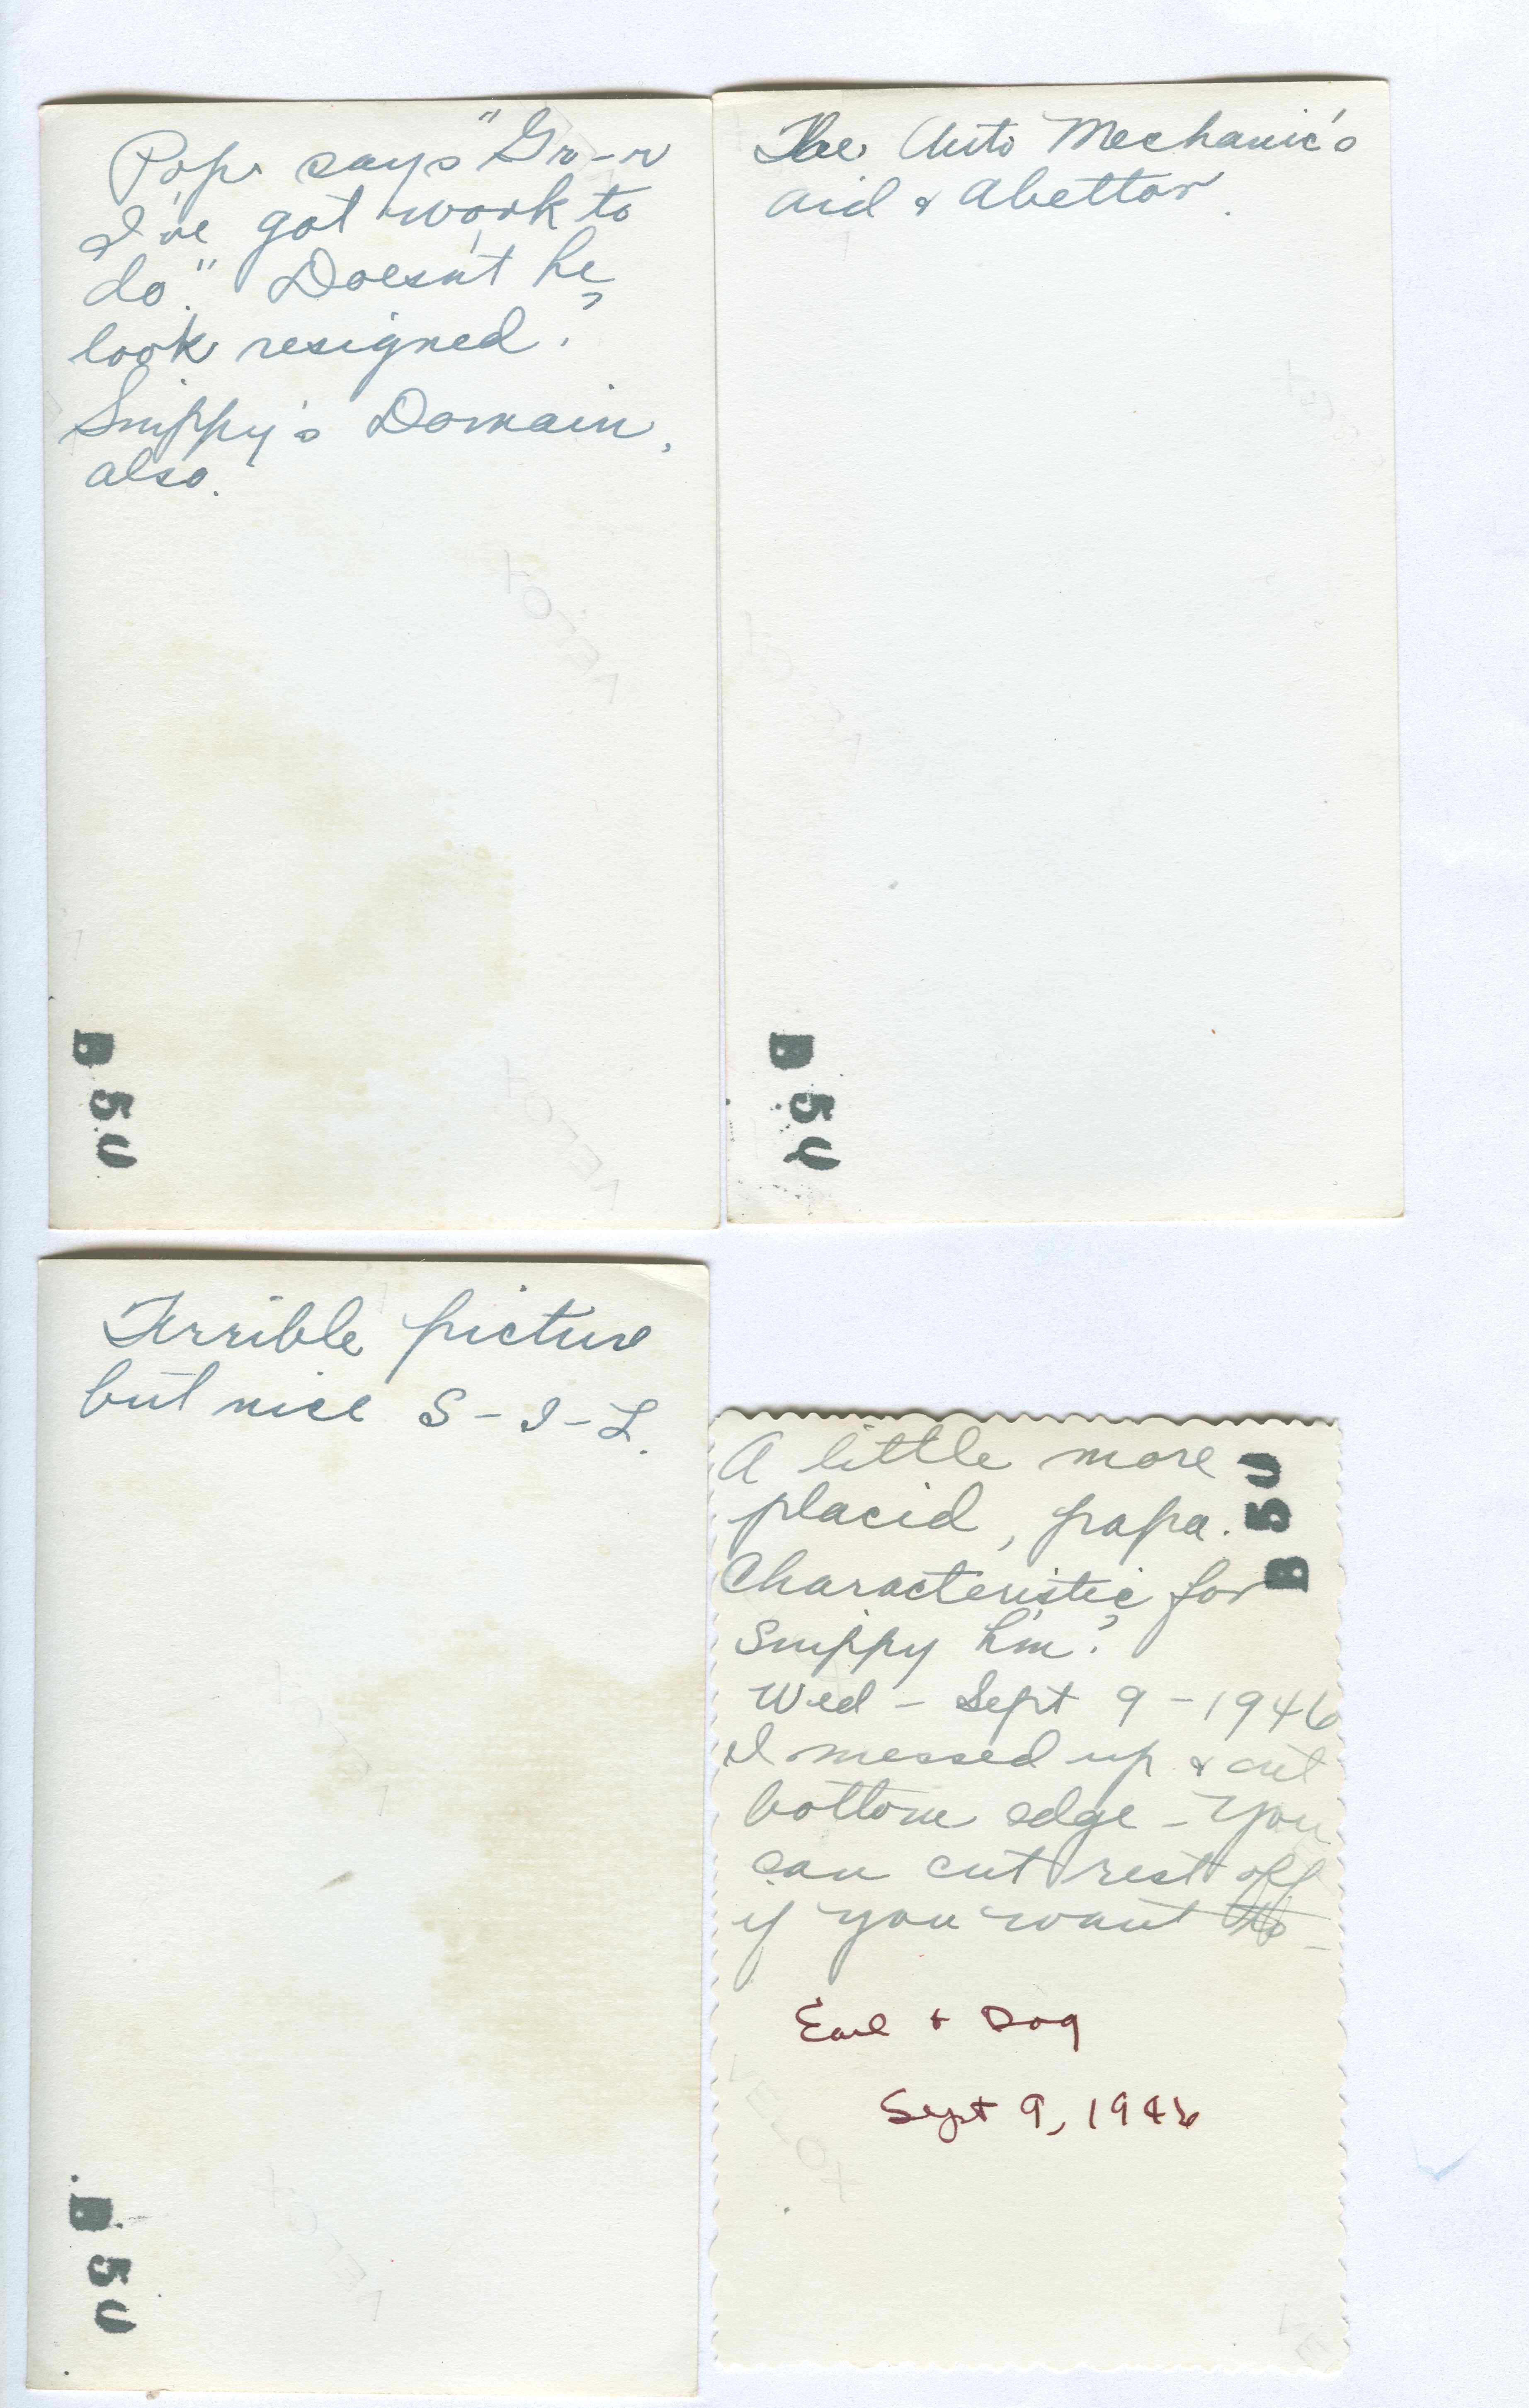 Pop says "Gr-r
I've got work to
do." Doesn't he
look resigned?
Snippy's Domain,
also.
B 5U
The Auto Mechanic's
aid & abettor.
B 5U
Terrible picture
but nice S-I-L.
B 5U
A little more
placid, papa.
Characteristic for
Snippy h'm?
Wed - Sept 9 - 1946
I messed up & cut
bottom edge - You
can cut rest off
if you want to -
B 5U
Earl + Dog
Sept 9, 1946